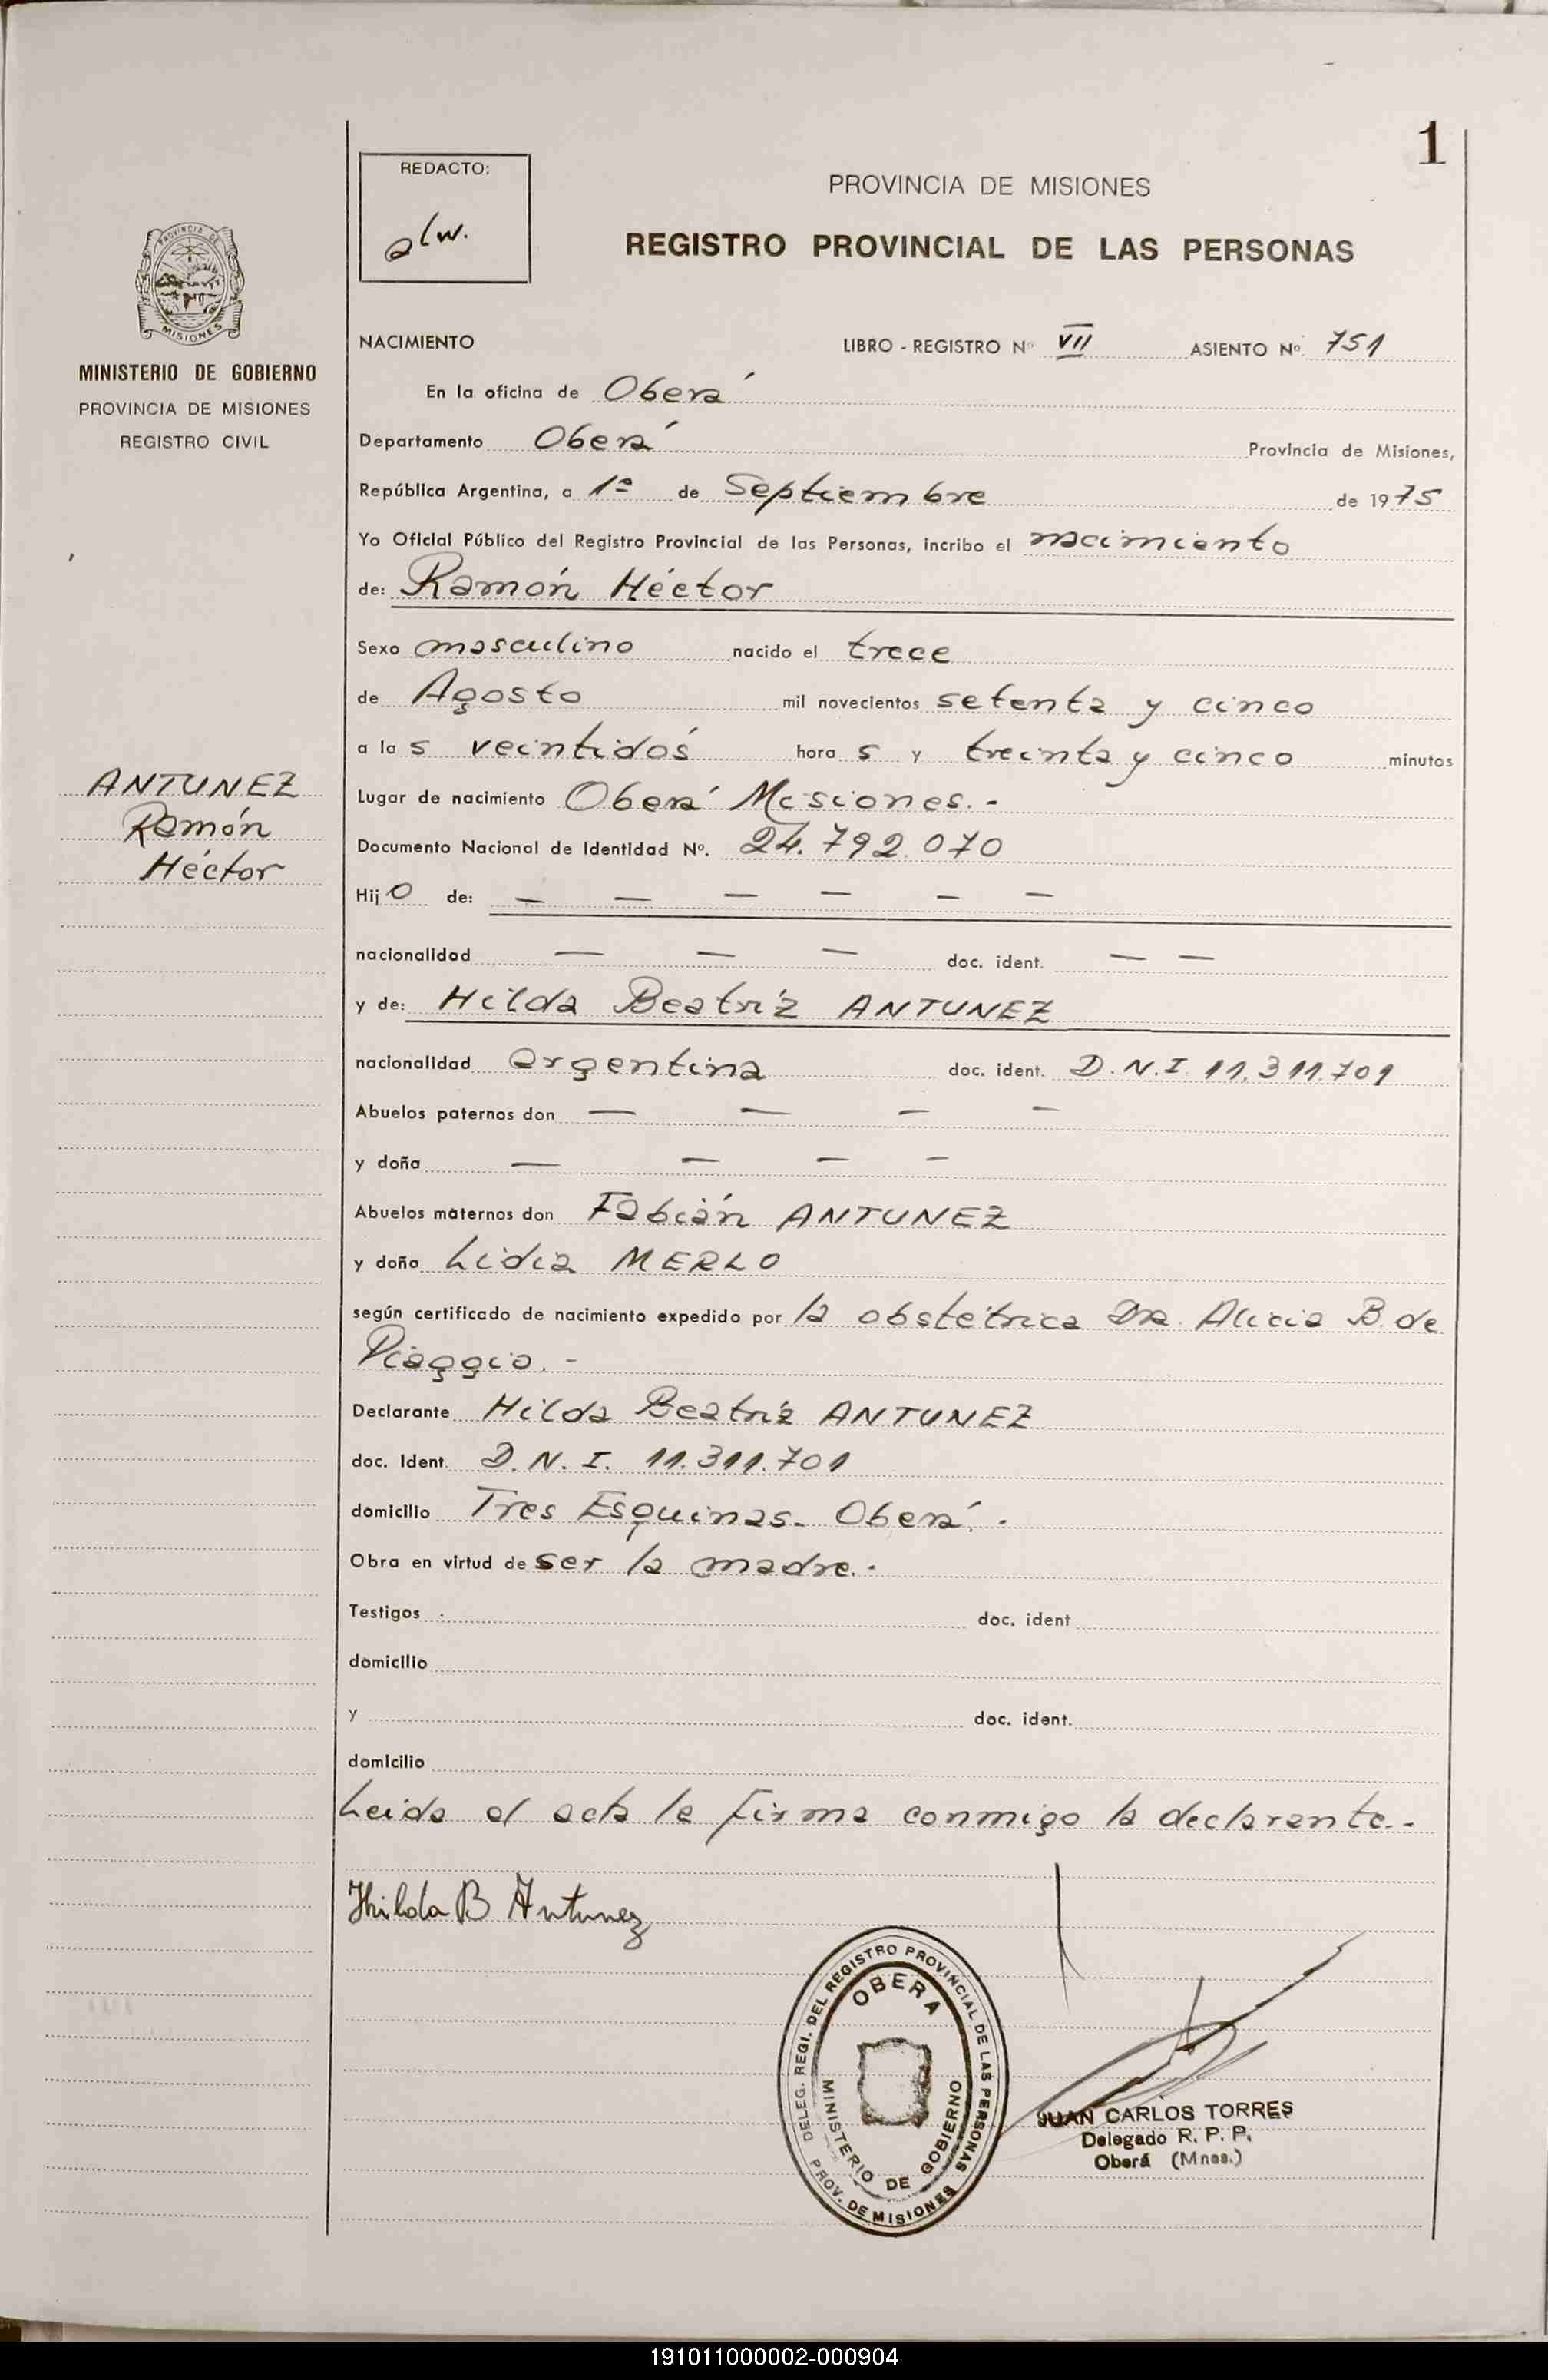 1
REDACTO:
alw.
PROVINCIA DE MISIONES
REGISTRO PROVINCIAL DE LAS PERSONAS
PROVINCIA DE
MISIONES
MINISTERIO DE GOBIERNO
PROVINCIA DE MISIONES
REGISTRO CIVIL
NACIMIENTO LIBRO - REGISTRO Nº VII ASIENTO Nº. 751
En la oficina de Oberá
Departamento Oberá Provincia de Misiones,
República Argentina, a 1º de Septiembre de 1975
Yo Oficial Público del Registro Provincial de las Personas, incribo el nacimiento
de: Ramón Héctor
Sexo masculino nacido el trece
de Agosto mil novecientos setenta y cinco
a las veintidós horas y treinta y cinco minutos
ANTUNEZ
Ramón
Héctor
Lugar de nacimiento Oberá Misiones.-
Documento Nacional de Identidad Nº. 24.792.070
Hijo de: — — — — — —
nacionalidad — — — doc. ident. — —
y de: Hilda Beatríz ANTUNEZ
nacionalidad argentina doc. ident. D.N.I. 11.311.701
Abuelos paternos don — — — —
y doña — — — —
Abuelos maternos don Fabián ANTUNEZ
y doña Lidia MERLO
según certificado de nacimiento expedido por la obstétrica Dra. Alicia B. de
Piaggio.-
Declarante Hilda Beatríz ANTUNEZ
doc. Ident. D.N.I. 11.311.701
domicilio Tres Esquinas- Oberá.-
Obra en virtud de ser la madre.-
Testigos doc. ident
domicilio
y doc. ident.
domicilio
Leida el acta la firma conmigo la declarante.-
Hilda B Antunez
DELEG. REGI. DEL REGISTRO PROVINCIAL DE LAS PERSONAS
OBERA
MINISTERIO DE GOBIERNO
PROV. DE MISIONES
JUAN CARLOS TORRES
Delegado R. P. P.
Oberá (Mnes.)
191011000002-000904